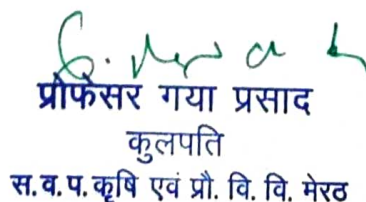 प्रोफेसर गया प्रसाद
कुलपति
स.व.प.कृषि एवं प्रौ. वि. वि. मेरठ